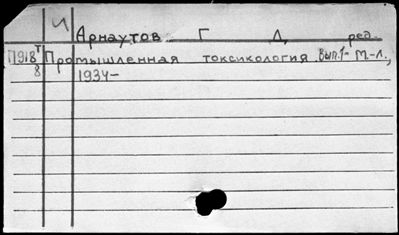 И
Арнаутов Г Д, ред.
П918 Т Промышленная токсикология. Вып. 1- М.-Л.,
8 1934-